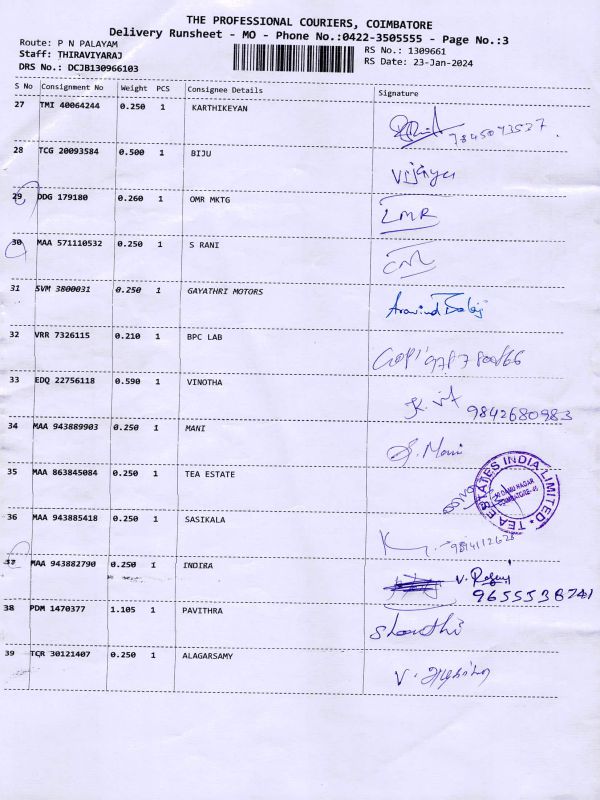 THE PROFESSIONAL COURIERS, COIMBATORE
Delivery Runsheet - MO - Phone No.:0422-3505555 - Page No.:3
Route: P N PALAYAM
Staff: THIRAVIYARAJ
DRS No.: DCJB130966103
RS No.: 1309661
RS Date: 23-Jan-2024
S No Consignment No Weight PCS Consignee Details Signature
27 TMI 40064244 0.250 1 KARTHIKEYAN
28 TCG 20093584 0.500 1 BIJU
29 DDG 179180 0.260 1 OMR MKTG
30 MAA 571110532 0.250 1 S RANI
31 SVM 3800031 0.250 1 GAYATHRI MOTORS Aravind
32 VRR 7326115 0.210 1 BPC LAB
33 EDQ 22756118 0.590 1 VINOTHA 9842680983
34 MAA 943889903 0.250 1 MANI S. Mani
35 MAA 863845084 0.250 1 TEA ESTATE
TEA ESTATES INDIA LIMITED
COIMBATORE-45
36 MAA 943885418 0.250 1 SASIKALA
37 MAA 943882790 0.250 1 INDIRA
9655538741
38 PDM 1470377 1.105 1 PAVITHRA Shanthi
39 TCR 30121407 0.250 1 ALAGARSAMY